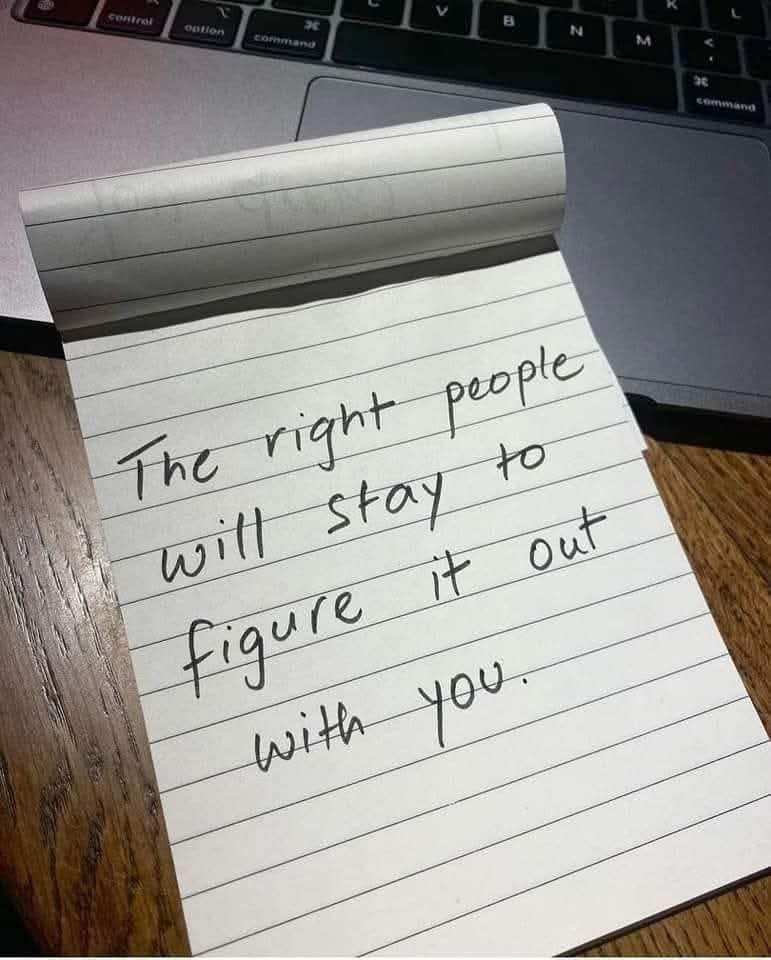 control
option
⌘
command
V
B
N
M
K
L
<
,
⌘
command
The right people
will stay to
figure it out
with you.